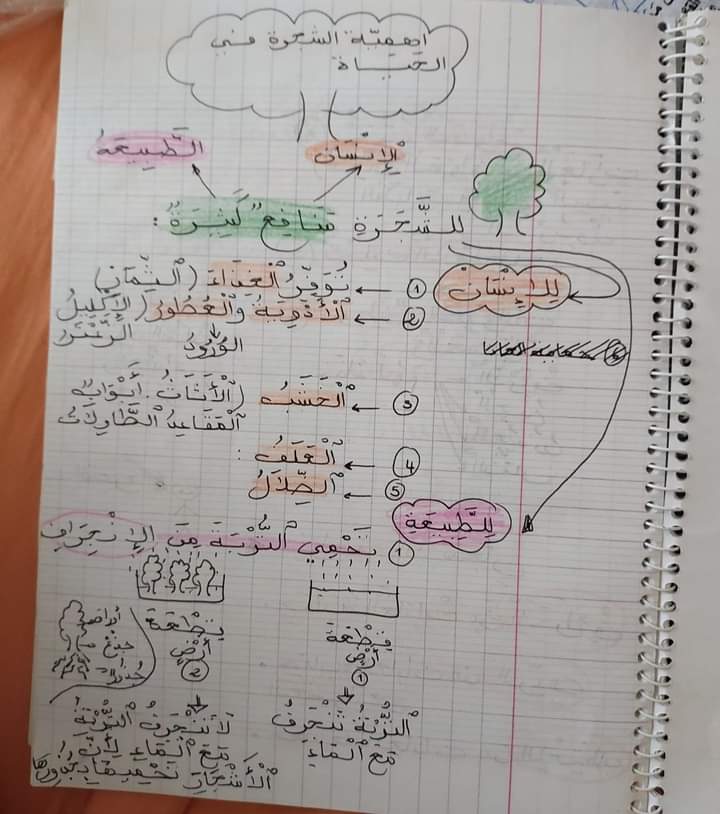 أهميّة الشجرة في
الحياة
الإِنْسَان
الطَّبيعة
للشَّجَرَةِ مَنَافِعٌ كَثِيرَةٌ :
لِلإِنْسَانْ
① ← تُوَفِّرُ الْغِذَاءَ (الثِّمَار)
② ← الْأَدْوِيَةُ والْعُطُورُ (الإِكْلِيلُ
الزَّعْتَر
الوُرُودُ
③ ← الْخَشَبُ (الْأَثَاثُ . أَبْوَابٌ
الْمَقَاعِدُ الطَّاوِلَاتُ
④ ← الْعَلَفُ :
⑤ ← الظِّلَالُ
لِلطَّبِيعَةِ
① تَحْمِي التُّرْبَةَ مِنَ الإِنْجِرَافِ
قِطْعَة
أَرْضٍ
①
التُّرْبَةُ تَنْجَرِفُ
مَعَ الْمَاءِ
قِطْعَة
أَرْضٍ
②
لَا تَنْجَرِفُ التُّرْبَةُ
مَعَ الْمَاءِ لِأَنَّ
الْأَشْجَارَ تَحْمِيهَا بِجُذُورِهَا
جذع
جُذور